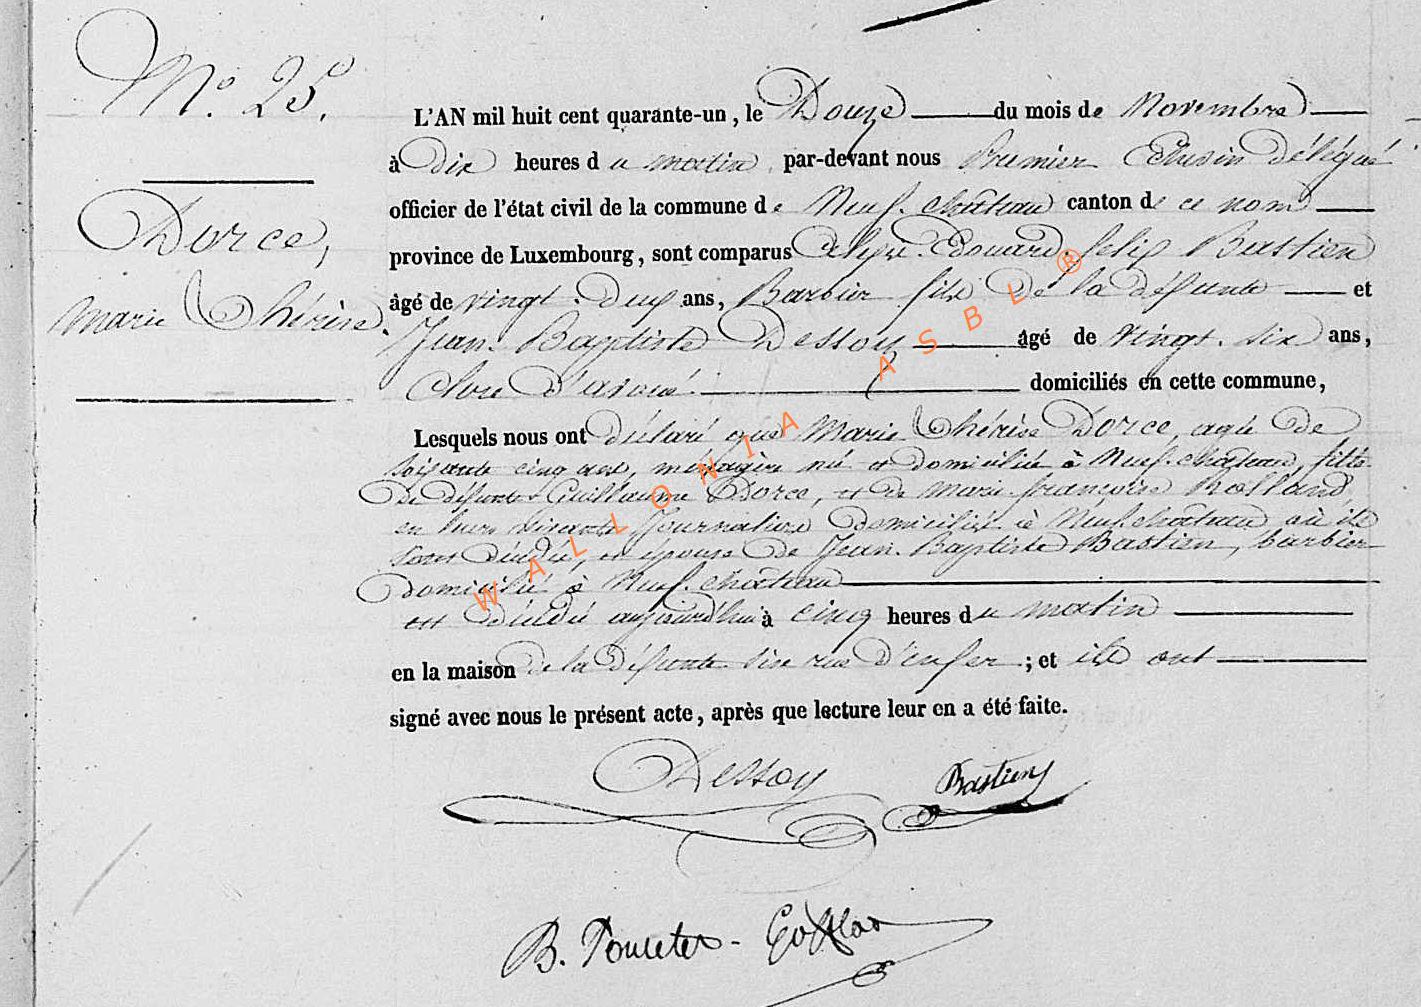 N.° 25.
Dorce,
Marie Thérèse.
L'AN mil huit cent quarante-un, le Douze du mois de Novembre
à Dix heures du matin, par-devant nous Premier Echevin délégué
officier de l'état civil de la commune de Neuf-château canton de ce nom
province de Luxembourg, sont comparus Edouard Felix Bastien
âgé de vingt-deux ans, Barbier fils de la défunte et
Jean-Baptiste Dessoy âgé de vingt-six ans,
Clerc d'avoué domiciliés en cette commune,
Lesquels nous ont déclaré que Marie Thérèse Dorce, agée de
soixante cinq ans, ménagère née et domiciliée à Neuf-château, fille
de défunts Guillaume Dorce, et de Marie-françoise Rolland,
en leur vivant Journaliers domiciliés à Neufchâteau où ils
sont décédés, et épouse de Jean-Baptiste Bastien, barbier
domicilié à Neuf-château
est décédée aujourd'hui à cinq heures du matin
en la maison de la défunte sise rue d'enfer ; et ils ont
signé avec nous le présent acte, après que lecture leur en a été faite.
Dessoy Bastien
B. Poncelet -
WALLONIA ASBL ®